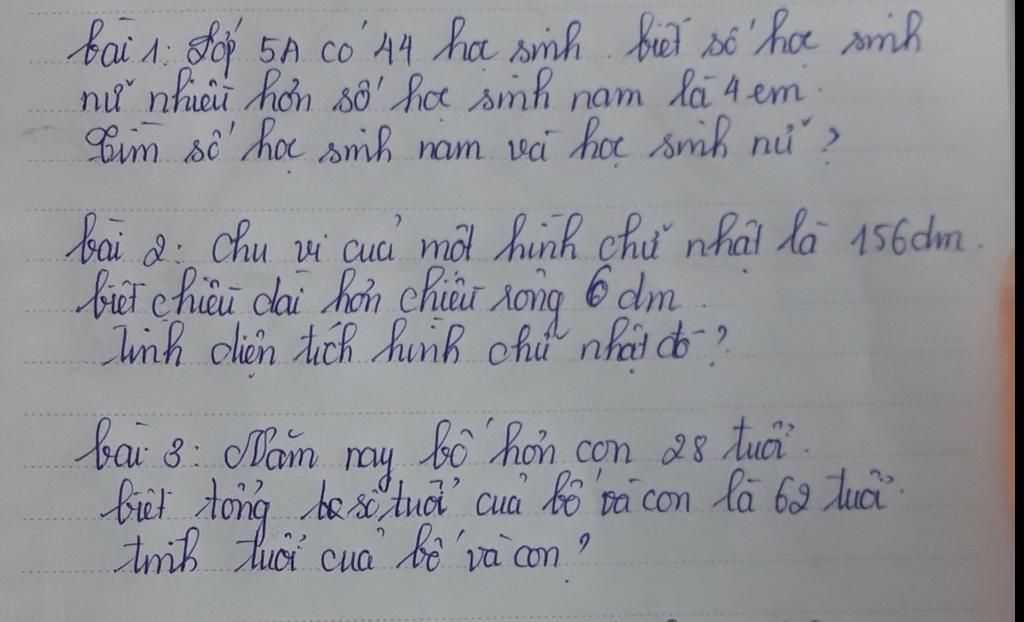 bài 1: Lớp 5A có 44 học sinh biết số học sinh
nữ nhiều hơn số học sinh nam là 4 em.
Tìm số học sinh nam và học sinh nữ ?
bài 2: Chu vi của một hình chữ nhật là 156dm.
biết chiều dài hơn chiều rộng 6 dm.
tính diện tích hình chữ nhật đó ?
bài 3: Năm nay bố hơn con 28 tuổi.
biết tổng số tuổi của bố và con là 62 tuổi.
tính tuổi của bố và con ?